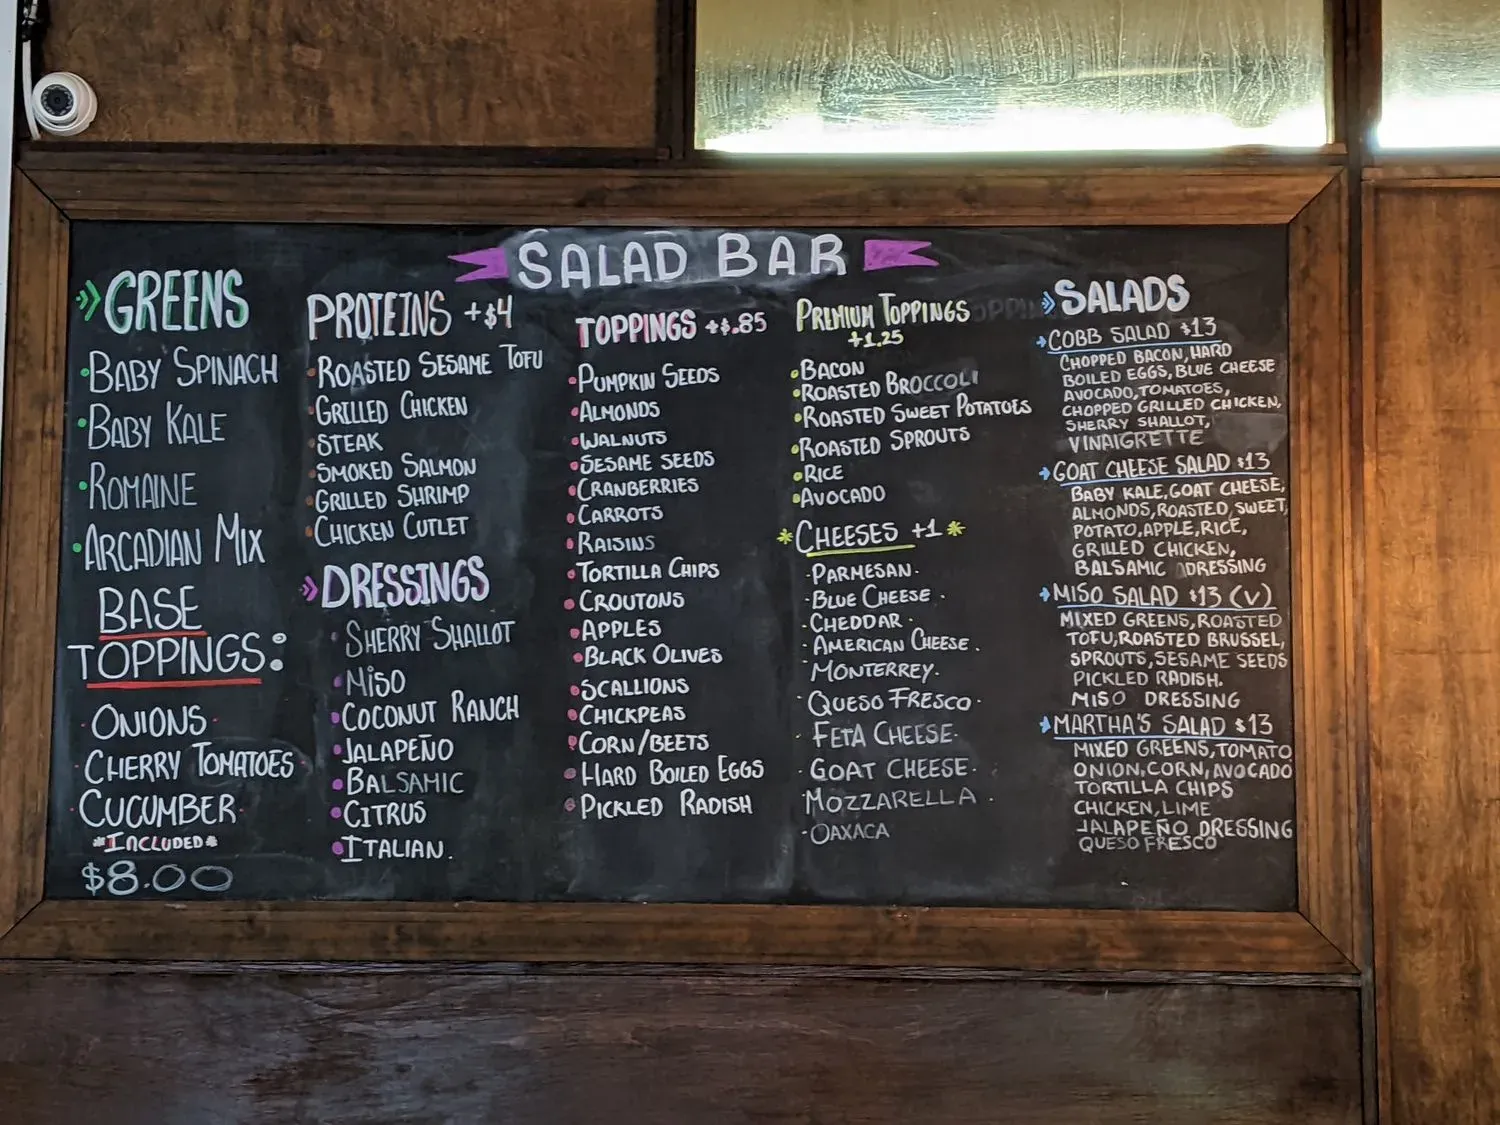 SALAD BAR
GREENS
BABY SPINACH
BABY KALE
ROMAINE
ARCADIAN MIX
BASE
TOPPINGS:
ONIONS
CHERRY TOMATOES
CUCUMBER
*INCLUDED*
$8.00
PROTEINS +$4
ROASTED SESAME TOFU
GRILLED CHICKEN
STEAK
SMOKED SALMON
GRILLED SHRIMP
CHICKEN CUTLET
DRESSINGS
SHERRY SHALLOT
MISO
COCONUT RANCH
JALAPEÑO
BALSAMIC
CITRUS
ITALIAN.
TOPPINGS +$.85
PUMPKIN SEEDS
ALMONDS
WALNUTS
SESAME SEEDS
CRANBERRIES
CARROTS
RAISINS
TORTILLA CHIPS
CROUTONS
APPLES
BLACK OLIVES
SCALLIONS
CHICKPEAS
CORN/BEETS
HARD BOILED EGGS
PICKLED RADISH
PREMIUM TOPPINGS
+1.25
BACON
ROASTED BROCCOLI
ROASTED SWEET POTATOES
ROASTED SPROUTS
RICE
AVOCADO
*CHEESES +1*
PARMESAN
BLUE CHEESE
CHEDDAR
AMERICAN CHEESE
MONTERREY
QUESO FRESCO
FETA CHEESE
GOAT CHEESE
MOZZARELLA
OAXACA
SALADS
COBB SALAD $13
CHOPPED BACON, HARD
BOILED EGGS, BLUE CHEESE
AVOCADO, TOMATOES,
CHOPPED GRILLED CHICKEN,
SHERRY SHALLOT,
VINAIGRETTE
GOAT CHEESE SALAD $13
BABY KALE, GOAT CHEESE,
ALMONDS, ROASTED SWEET
POTATO, APPLE, RICE,
GRILLED CHICKEN,
BALSAMIC DRESSING
MISO SALAD $13 (V)
MIXED GREENS, ROASTED
TOFU, ROASTED BRUSSEL,
SPROUTS, SESAME SEEDS
PICKLED RADISH.
MISO DRESSING
MARTHA'S SALAD $13
MIXED GREENS, TOMATO
ONION, CORN, AVOCADO
TORTILLA CHIPS
CHICKEN, LIME
JALAPEÑO DRESSING
QUESO FRESCO